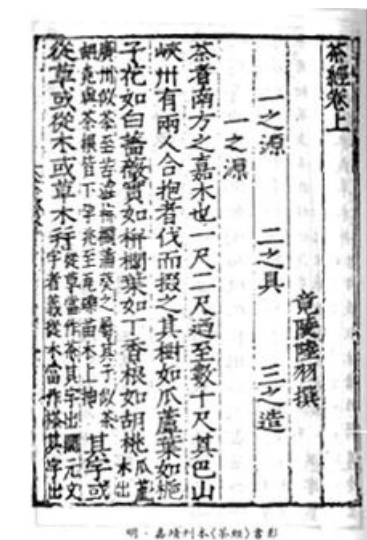 茶經卷上
竟陵陸羽撰
一之源 二之具 三之造
一之源
茶者南方之嘉木也一尺二尺迺至數十尺其巴山
峽州有兩人合抱者伐而掇之其樹如瓜蘆葉如梔
子花如白薔薇實如栟櫚葉如丁香根如胡桃瓜蘆木出
廣州似茶至苦澁栟櫚蒲葵之屬其子似茶
胡桃與茶根皆下孕兆至瓦礫苗木上抽其字或
從草或從木或草木并從草當作茶其字出開元文
字者義從木當作搽其字出
明·嘉靖刊本《茶經》書影